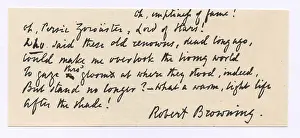 Oh, emptiness of fame!
Oh, Persic Zoroaster, Lord of Stars!
Who said these old renowns, dead long ago,
Could make me overlook the living world
To gaze thro' gloom at where they stood, indeed,
But stand no longer? — what a warm, light life
After the shade!
Robert Browning.